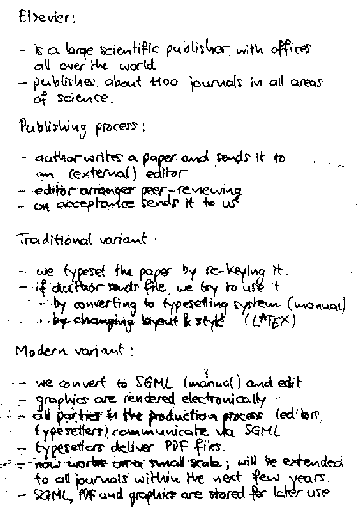 Elsevier:
- is a large scientific publisher, with offices
all over the world
- publishes about 1100 journals in all areas
of science.
Publishing process:
- author writes a paper and sends it to
an (external) editor
- editor arranges peer-reviewing
- on acceptance sends it to us
Traditional variant:
- we typeset the paper by re-keying it.
- if author sends file, we try to use it
- by converting to typesetting system (manual)
- by changing layout & style (LATEX)
Modern variant:
- we convert to SGML (manual) and edit
- graphics are rendered electronically
- all parties in the production process (editors,
typesetters) communicate via SGML
- typesetters deliver PDF files.
- now works on a small scale; will be extended
to all journals within the next few years.
- SGML, PDF and graphics are stored for later use